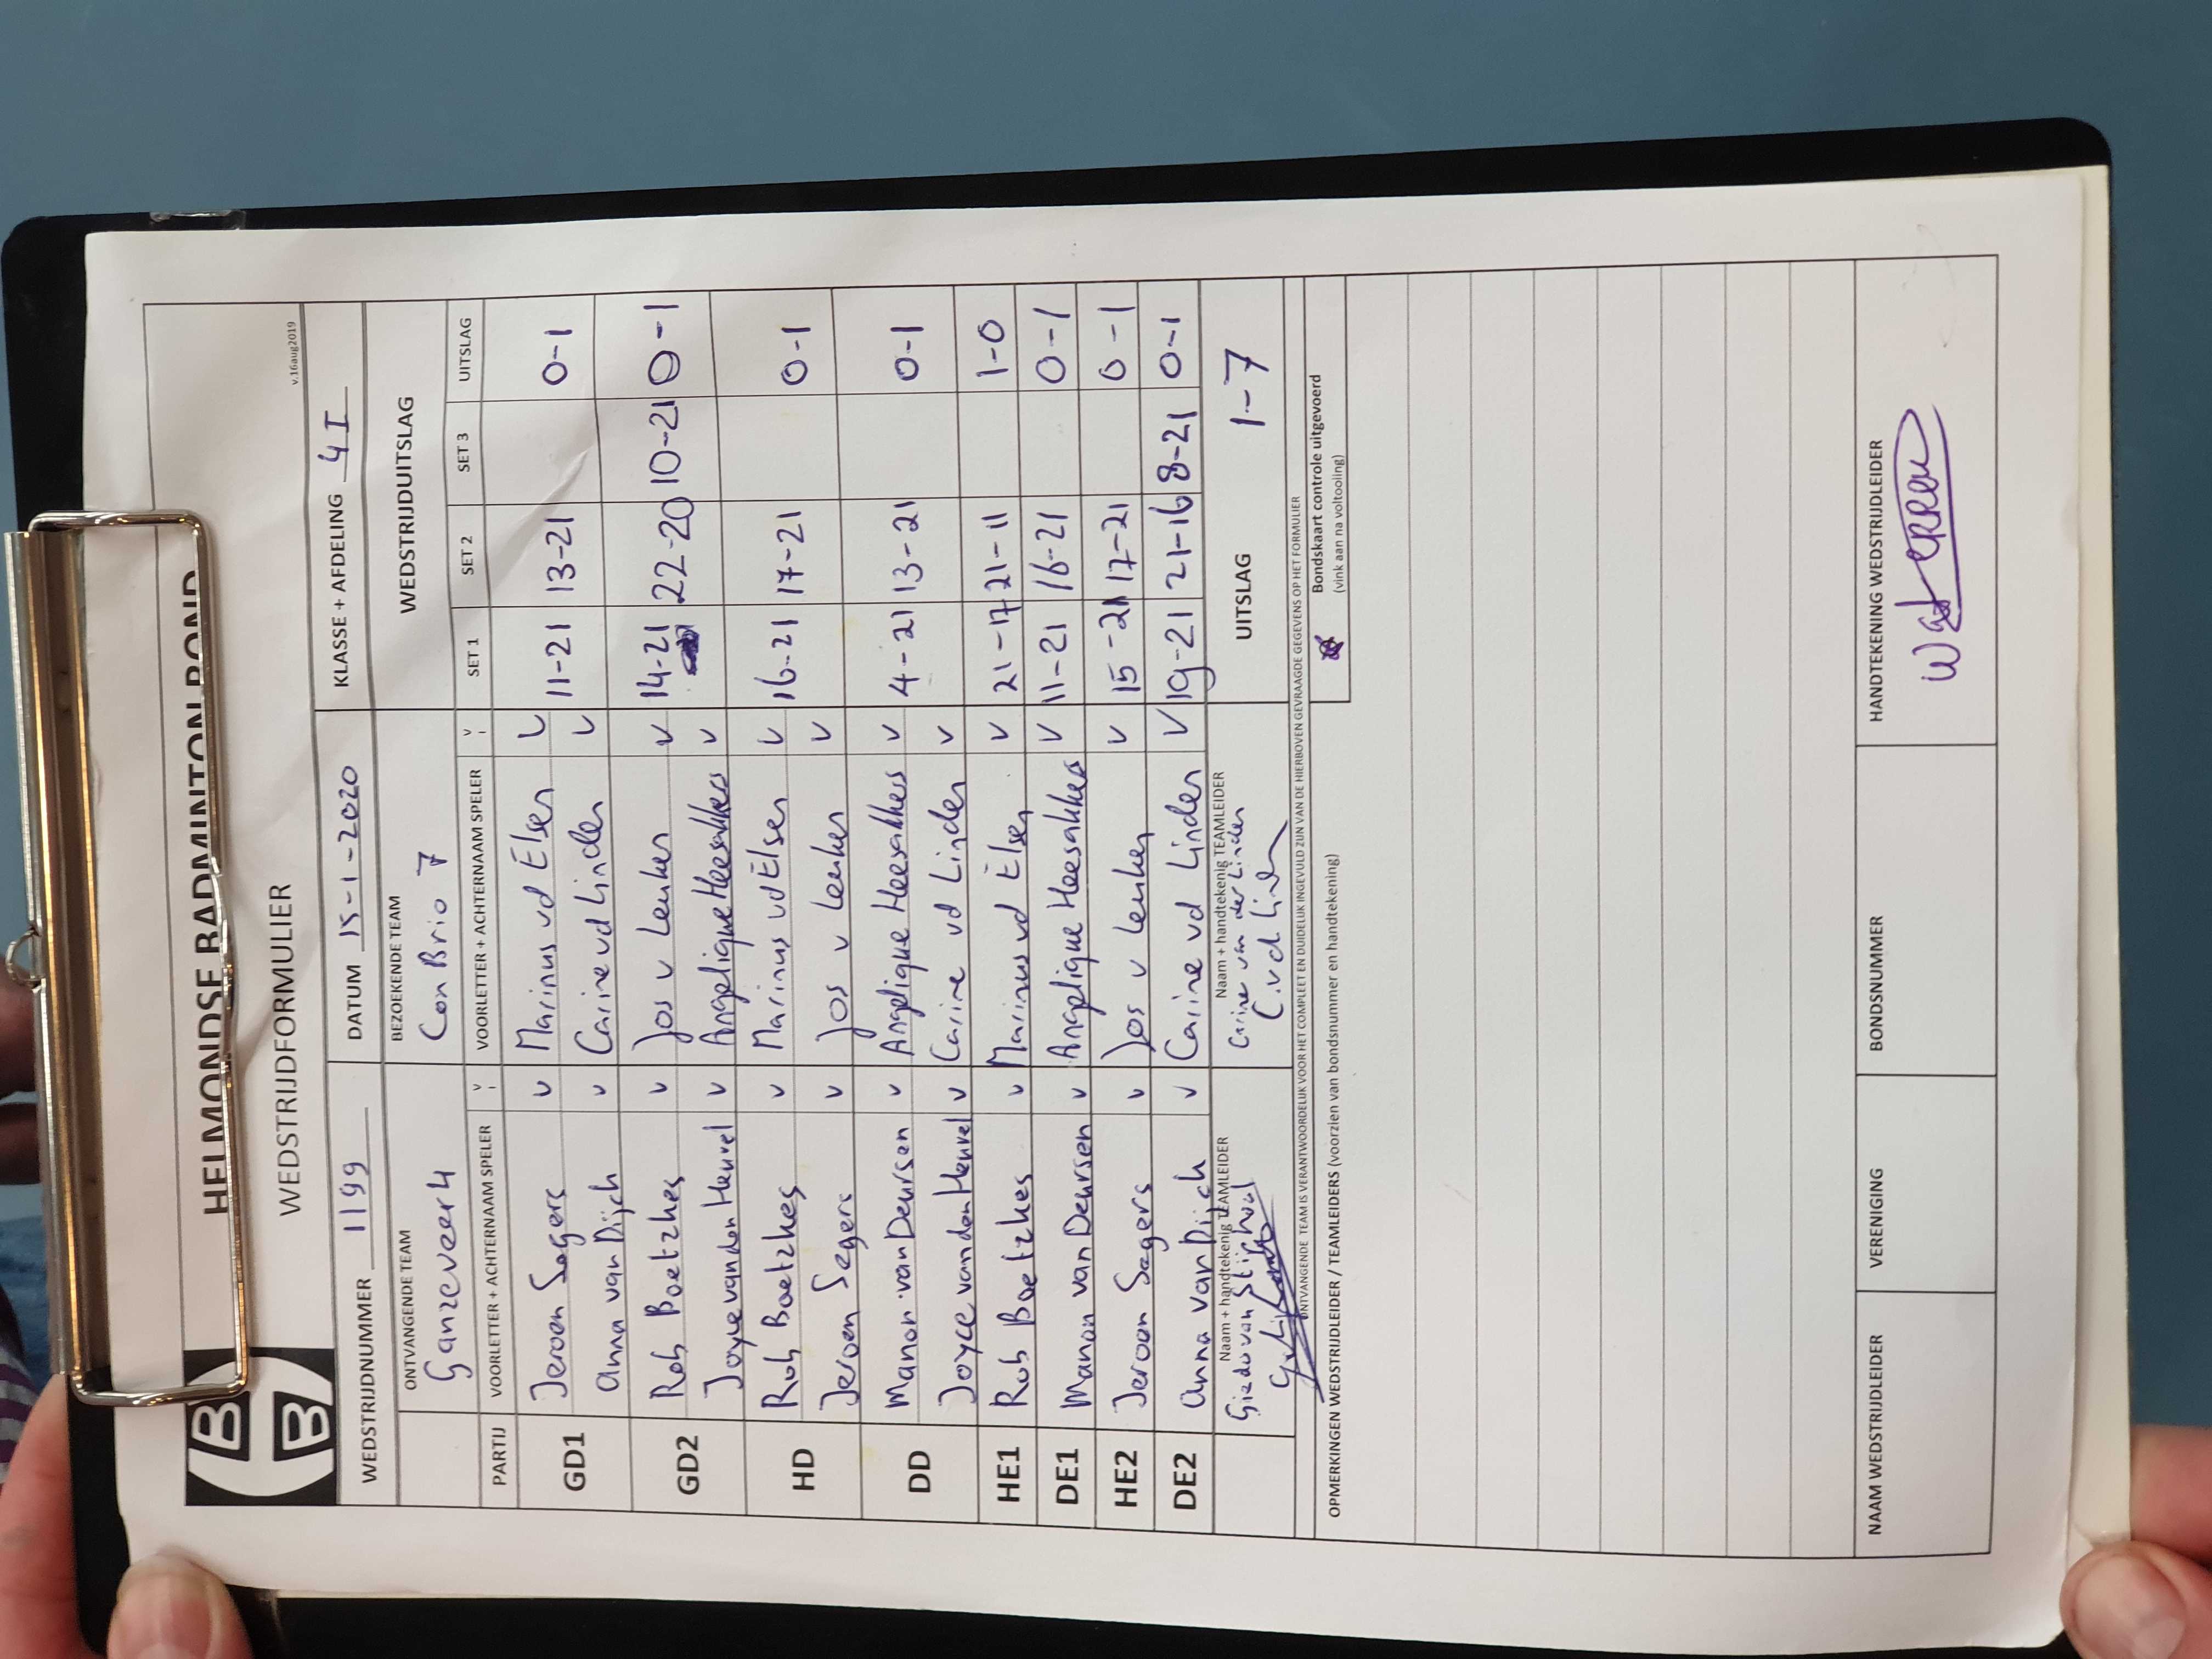 HELMONDSE BADMINTON BOND
WEDSTRIJDFORMULIER
v.16aug2019
WEDSTRIJDNUMMER 1199 DATUM 15-1-2020 KLASSE + AFDELING 4I
ONTVANGENDE TEAM BEZOEKENDE TEAM WEDSTRIJDUITSLAG
Ganzeveer 4 Con Brio 7
PARTIJ VOORLETTER + ACHTERNAAM SPELER V VOORLETTER + ACHTERNAAM SPELER V SET 1 SET 2 SET 3 UITSLAG
GD1 Jeroen Segers v Marinus vd Elsen v 11-21 13-21 0-1
Anna van Dijck v Carine vd Linden v
GD2 Rob Boetzkes v Jos v Lenken v 14-21 22-20 10-21 0-1
Joyce van den Heuvel v Angelique Heesakkers v
HD Rob Boetzkes v Marinus vd Elsen v 16-21 17-21 0-1
Jeroen Segers v Jos v Lenken v
DD Manon van Deursen v Angelique Heesakkers v 4-21 13-21 0-1
Joyce van den Heuvel v Carine vd Linden v
HE1 Rob Boetzkes v Marinus vd Elsen v 21-17 21-11 1-0
DE1 Manon van Deursen v Angelique Heesakkers v 11-21 16-21 0-1
HE2 Jeroen Segers v Jos v Lenken v 15-21 17-21 0-1
DE2 Anna van Dijck v Carine vd Linden v 19-21 21-16 8-21 0-1
Naam + handtekenig TEAMLEIDER Naam + handtekenig TEAMLEIDER UITSLAG 1-7
van Carine van der Linden
C. vd Linden
ONTVANGENDE TEAM IS VERANTWOORDELIJK VOOR HET COMPLEET EN DUIDELIJK INGEVULD ZIJN VAN DE HIERBOVEN GEVRAAGDE GEGEVENS OP HET FORMULIER
Bondskaart controle uitgevoerd
(vink aan na voltooling)
OPMERKINGEN WEDSTRIJDLEIDER / TEAMLEIDERS (voorzien van bondsnummer en handtekening)
NAAM WEDSTRIJDLEIDER VERENIGING BONDSNUMMER HANDTEKENING WEDSTRIJDLEIDER